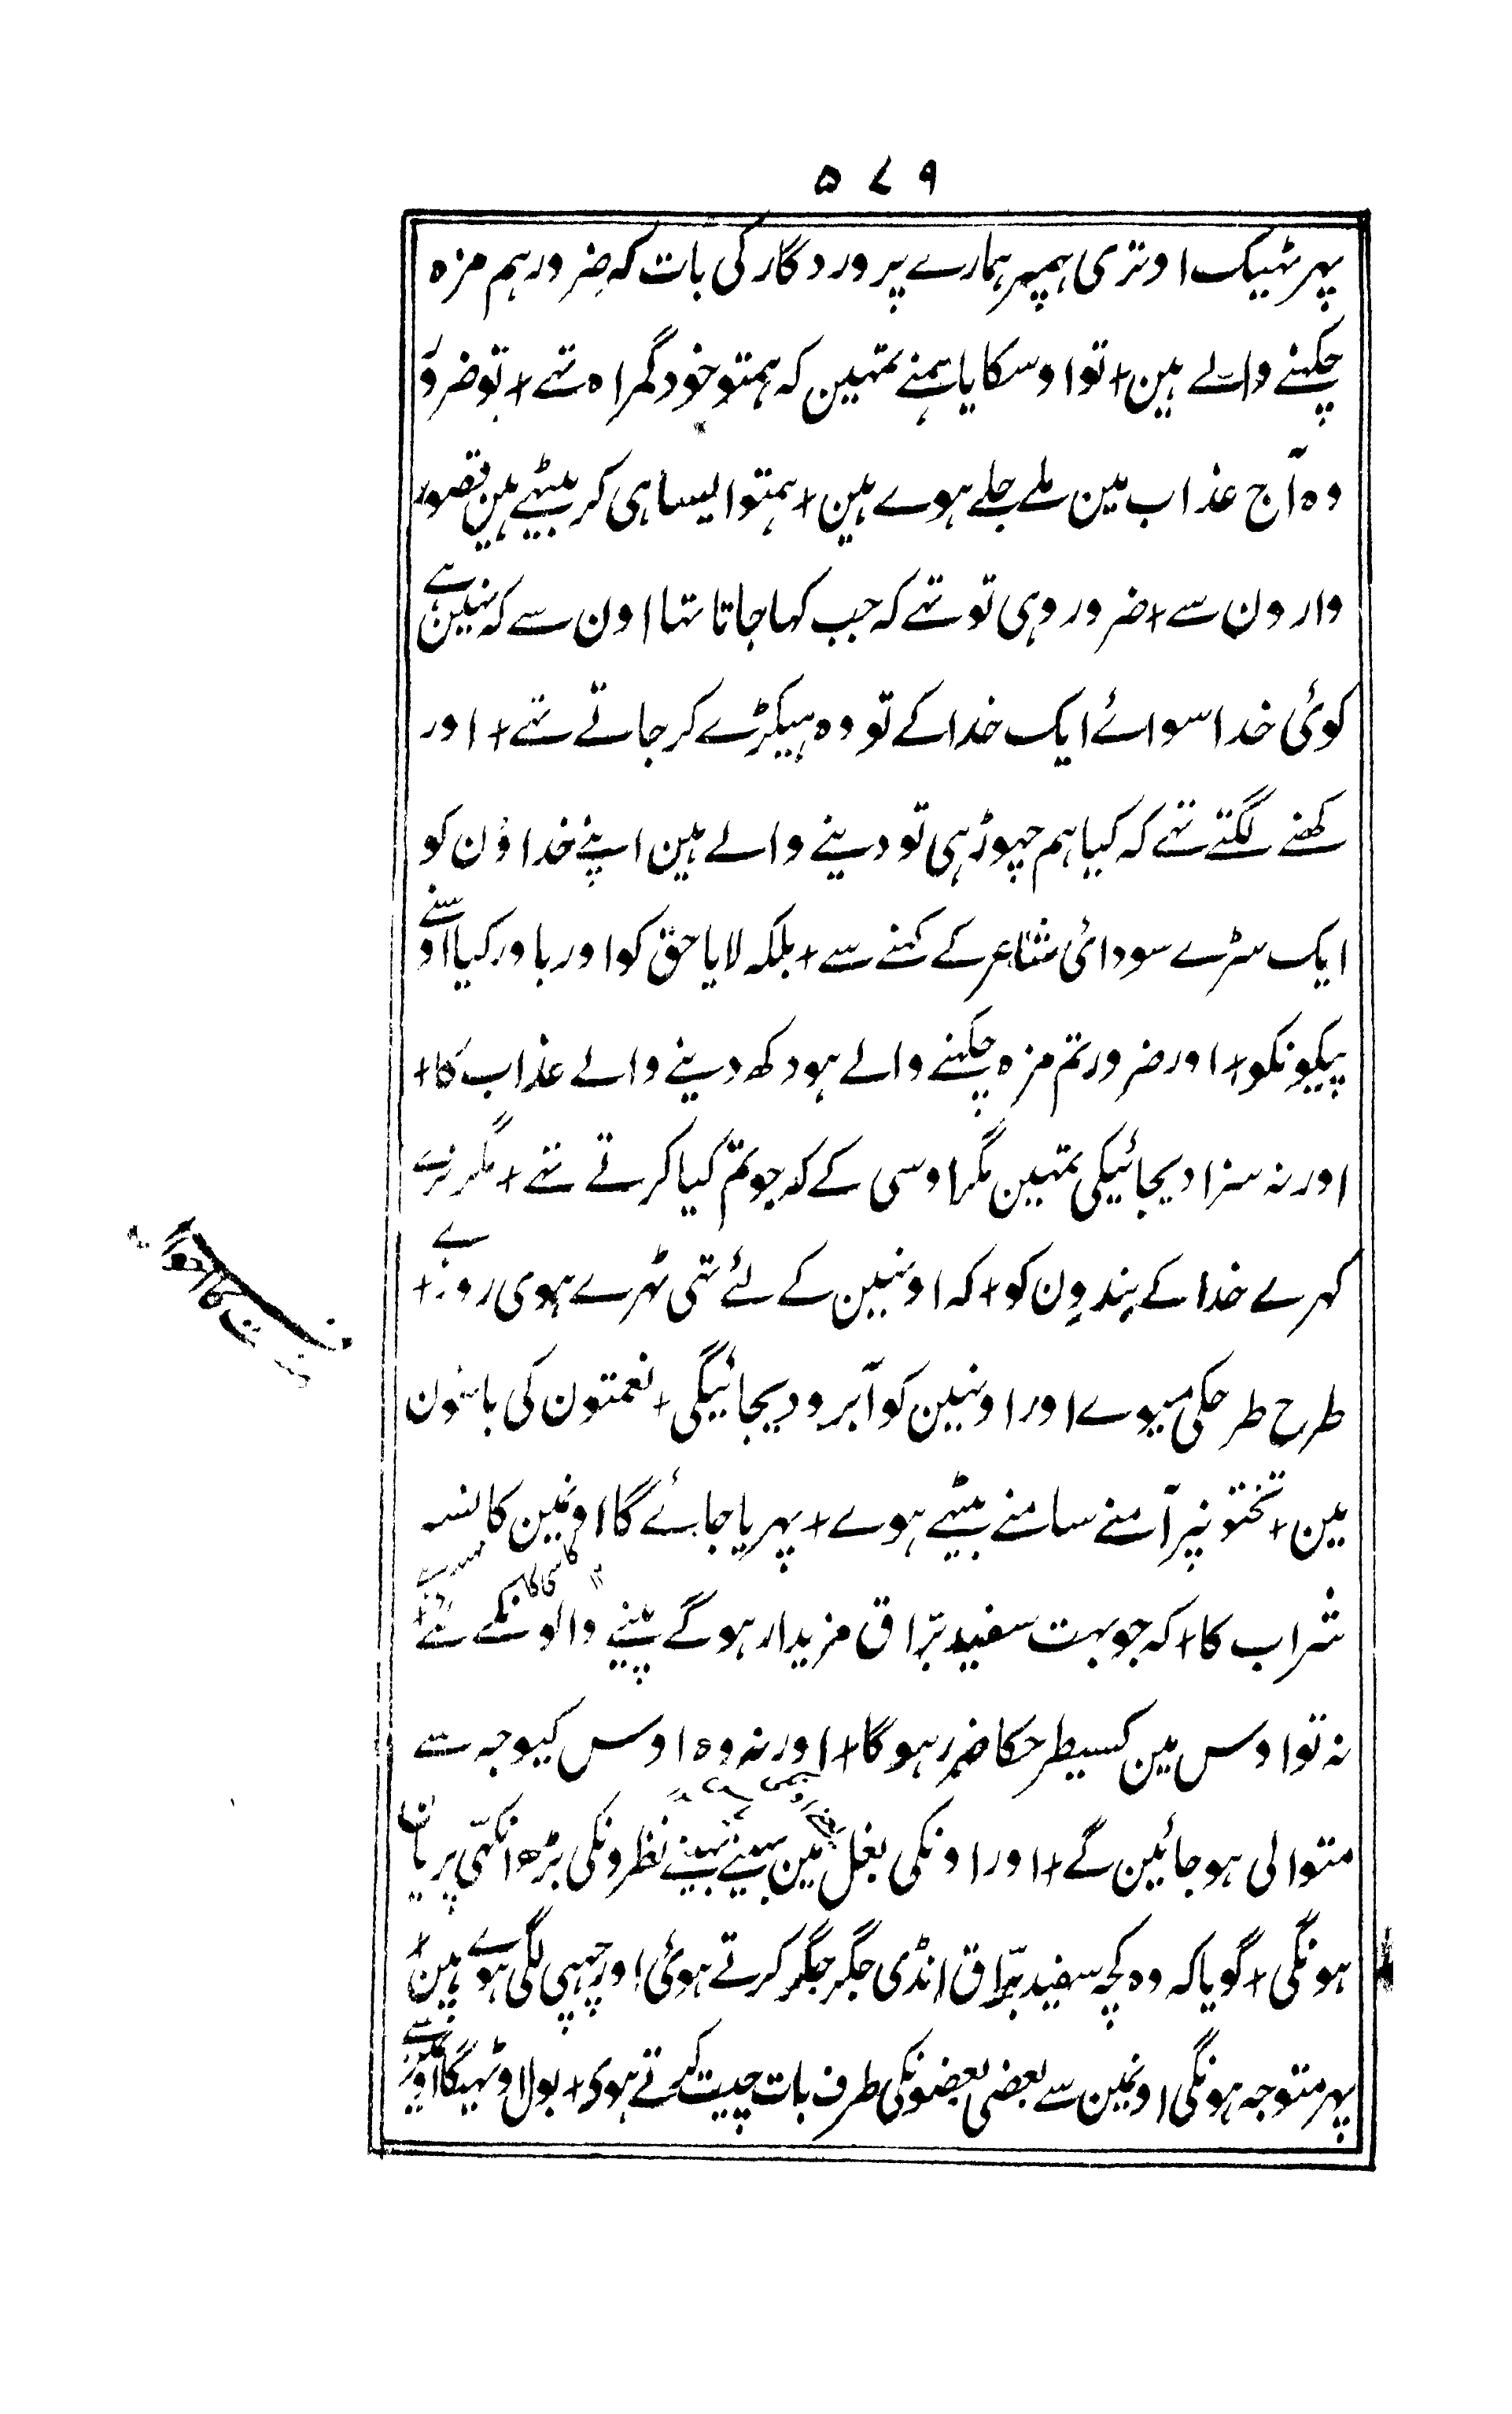 ۵۷۹
پہر ٹہیک اوتری ہمپر ہمارے پروردگار کی بات کہ ضرور ہم مزہ
چکہنے والے ہین + تو اوسکایا ہمنے تمہین کہ ہمتو خود گمراہ تہے + تو ضرور
وہ آج عذاب مین ملے جلے ہوے ہین + ہمتو ایسا ہی کر بیٹہے ہین قصور
وارون سے + ضرور وہی تو تہے کہ جب کہا جاتا تہا اون سے کہ نہین ہے
کوئی خدا سوائے ایک خدا کے تو وہ ہیکڑے کر جاتے تہے + اور
کہنے لگتے تہے کہ کیا ہم چہوڑ ہی تو دینے والے ہین اپنے خداؤن کو
ایک سڑے سودائی شاعر کے کہنے سے + بلکہ لایا حق کو اور باور کیا اوسنے
پیکیونکو + اور ضرور تم مزہ چکہنے والے ہو دکھ دینے والے عذاب کا +
اور نہ سزا دیجائیگی تمہین مگر اوسی کے کہ جو تم کیا کرتے تہے + مگر نرے
کہرے خدا کے بندون کو + کہ اونہین کے لئے تہی ٹہرے ہوی روزے +
طرح طرحکی میوے اور اونہین کو آبرو دیجائیگی + نعمتون کی باغون
مین + تختونپر آمنے سامنے بیٹہے ہوے + پہریا جائے گا اونمین کانسہ
شراب کا + کہ جو بہت سفید برّاق مزیدار ہوگے پینے والونکے لئے +
نہ تو اوس مین کسیطرحکا ضرر ہوگا + اور نہ وہ اوس کیوجہ سے
متوالی ہو جائین گے + اور اونکی بغل مین نظرونکی بڑھ انکہی پریان
ہونگی + گویا کہ وہ کچہ سفید برّاق انڈی جگر جگر کرتے ہوئی اور چہپی لگی ہوے ہین +
پہر متوجہ ہونگی اونمین سے بعضی بعضونکی طرف بات چیت کرتے ہوی + بول اوٹہیگا